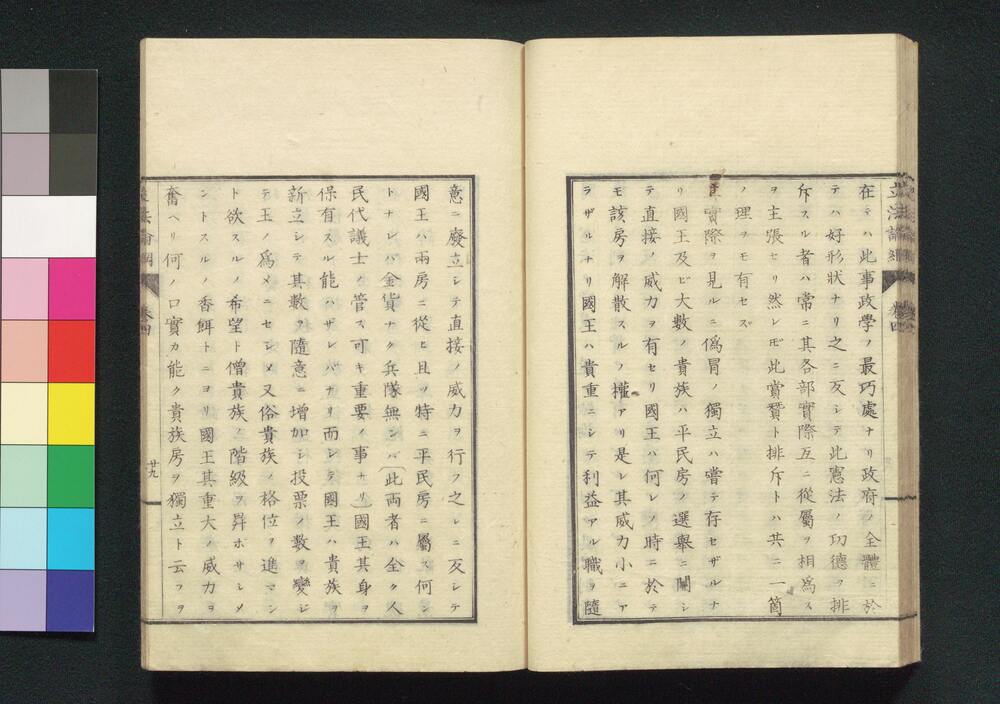 在テハ此事政學ノ最巧處ナリ政府ノ全體ニ於
テハ好形狀ナリ之ニ反シテ此憲法ノ功德ヲ排
斥スル者ハ常ニ其各部實際互ニ從屬ヲ相爲ス
ヲ主張セリ然レ𪜈此賞賛ト排斥トハ共ニ一箇
ノ理ヲモ有セズ
實際ヲ見ルニ僞冒ノ獨立ハ嘗テ存セザルナ
リ國王及ビ大數ノ貴族ハ平民房ノ選舉ニ關シ
テ直接ノ威力ヲ有セリ國王ハ何レノ時ニ於テ
モ該房ヲ解散スルノ權アリ是レ其威力小ニア
ラザルナリ國王ハ貴重ニシテ利益アル職ヲ隨
意ニ廢立シテ直接ノ威力ヲ行フ之レニ反シテ
國王ハ兩房ニ從ヒ且ツ特ニ平民房ニ屬ス何ン
トナレバ金貨ナク兵隊無シバ(此両者ハ全ク人
民代議士ノ管ス可キ重要ノ事ナリ)國王其身ヲ
保有スル能ハザレバナリ而シテ國王ハ貴族ヲ
新立シテ其數ヲ隨意ニ增加シ投票ノ數ヲ變ジ
テ王ノ爲メニセシメ又俗貴族ノ格位ヲ進マン
ト欲スルノ希望ト僧貴族ノ階級ヲ昇ホサシメ
ントスルノ香餌トニヨリ國王其重大ノ威力ヲ
奮ヘリ何ノ口實カ能ク貴族房ヲ獨立ト云フヲ
卷四
廿九